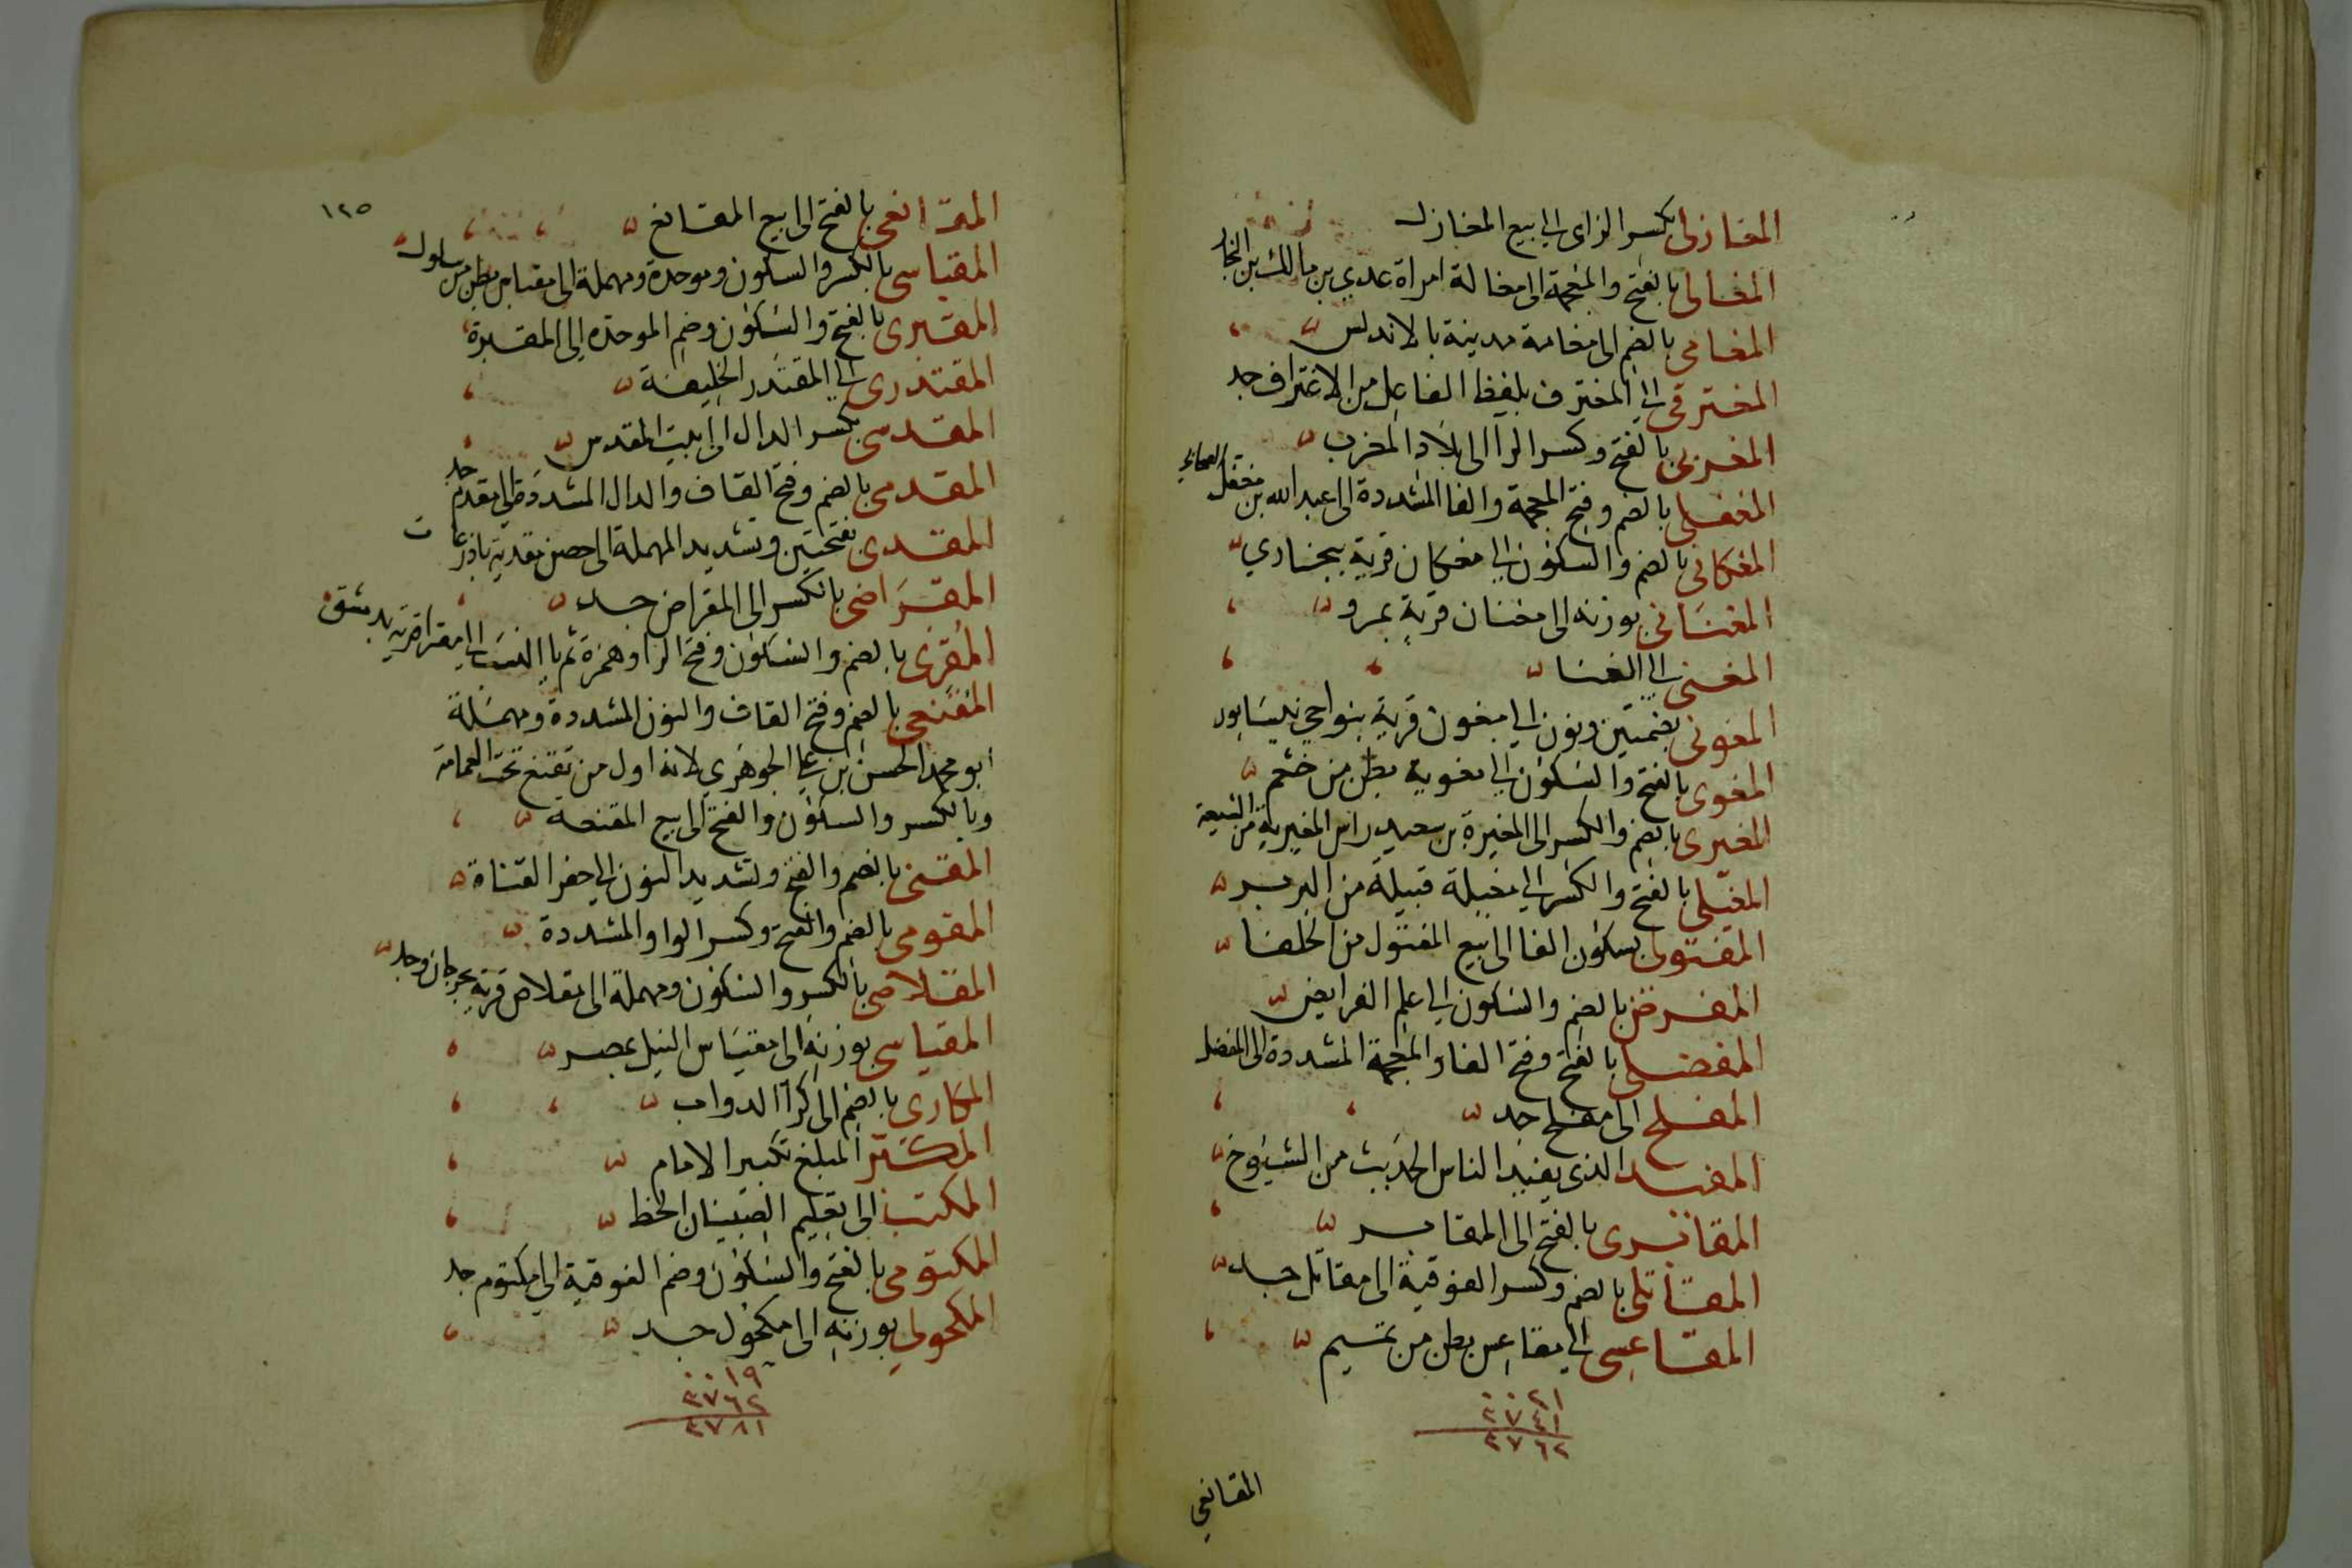 المغازلى بكسر الزاى الى بيع المغازل
المغالى بالفتح والمعجمة الى مغالة امراة عدي بن مالك بن النجار
المغامى بالضم الى مغامة مدينة بالاندلس
المغترفى الى المغترف بلفظ الفاعل من الاغتراف جد
المغربى بالفتح وكسر الرا الى بلاد المغرب
المغفلى بالضم وفتح المعجمة والفا المشددة الى عبد الله بن مغفل الصحابي
المغكانى بالضم والسكون الى مغكان قرية ببخاري
المغنانى بوزنه الى مغنان قرية بمرو
المغنى الى الغنا
المغونى بضمتين ونون الى مغون قرية بنواحي نيسابور
المغوى بالفتح والسكون الى مغوية بطن من خثعم
المغيرى بالضم والكسر الى المغيرة بن سعيد راس المغيرية من الشيعة
المغيلى بالفتح والكسر الى مغيلة قبيلة من البربر
المفتولى بسكون الفا الى بيع المفتول من الحلفا
المفرضى بالضم والسكون الى علم الفرايض
المفضلى بالفتح وفتح الفا والمعجمة المشددة الى المفضل
المفلح الى مفلح جد
المفيد الذى يفيد الناس الحديث من الشيوخ
المقابرى بالفتح الى المقابر
المقاتلى بالضم وكسر الفوقية الى مقاتل جد
المقاعسى الى مقاعس بطن من تميم
٠٠٢١
٣٧٤١
٣٧٦٢
المقانعي
١٢٥
المقانعى بالفتح الى بيع المقانع
المقباسى بالكسر والسكون وموحدة ومهملة الى مقباس بطن من سلول
المقبرى بالفتح والسكون وضم الموحدة الى المقبرة
المقتدرى الى المقتدر الخليفة
المقدسى بكسر الدال الى بيت المقدس
المقدمى بالضم وفتح القاف والدال المشددة الى مقدم جد
المقدى بفتحتين وتشديد المهملة الى حصن مقدية باذرعات
المقراضى بالكسر الى المقراض جد
المقرى بالضم والسكون وفتح الرا وهمزة ثم يا النسب الى مقرا قرية بدمشق
المقنعى بالضم وفتح القاف والنون المشددة ومهملة
ابو محمد الحسن بن علي الجوهري لانه اول من تقنع تحت العمامة
وبالكسر والسكون والفتح الى بيع المقنعة
المقنى بالضم والفتح وتشديد النون الى حفر القناة
المقومى بالضم والفتح وكسر الواو المشددة
المقلاصى بالكسر والسكون ومهملة الى مقلاص قرية بجرجان وجد
المقياسى بوزنه الى مقياس النيل بمصر
المكارى بالضم الى كرا الدواب
المكبر المبلغ تكبير الامام
المكتب الى تعليم الصبيان الخط
المكتومى بالفتح والسكون وضم الفوقية الى مكتوم جد
المكحولى بوزنه الى مكحول جد
٠٠١٩
٣٧٦٢
٣٧٨١